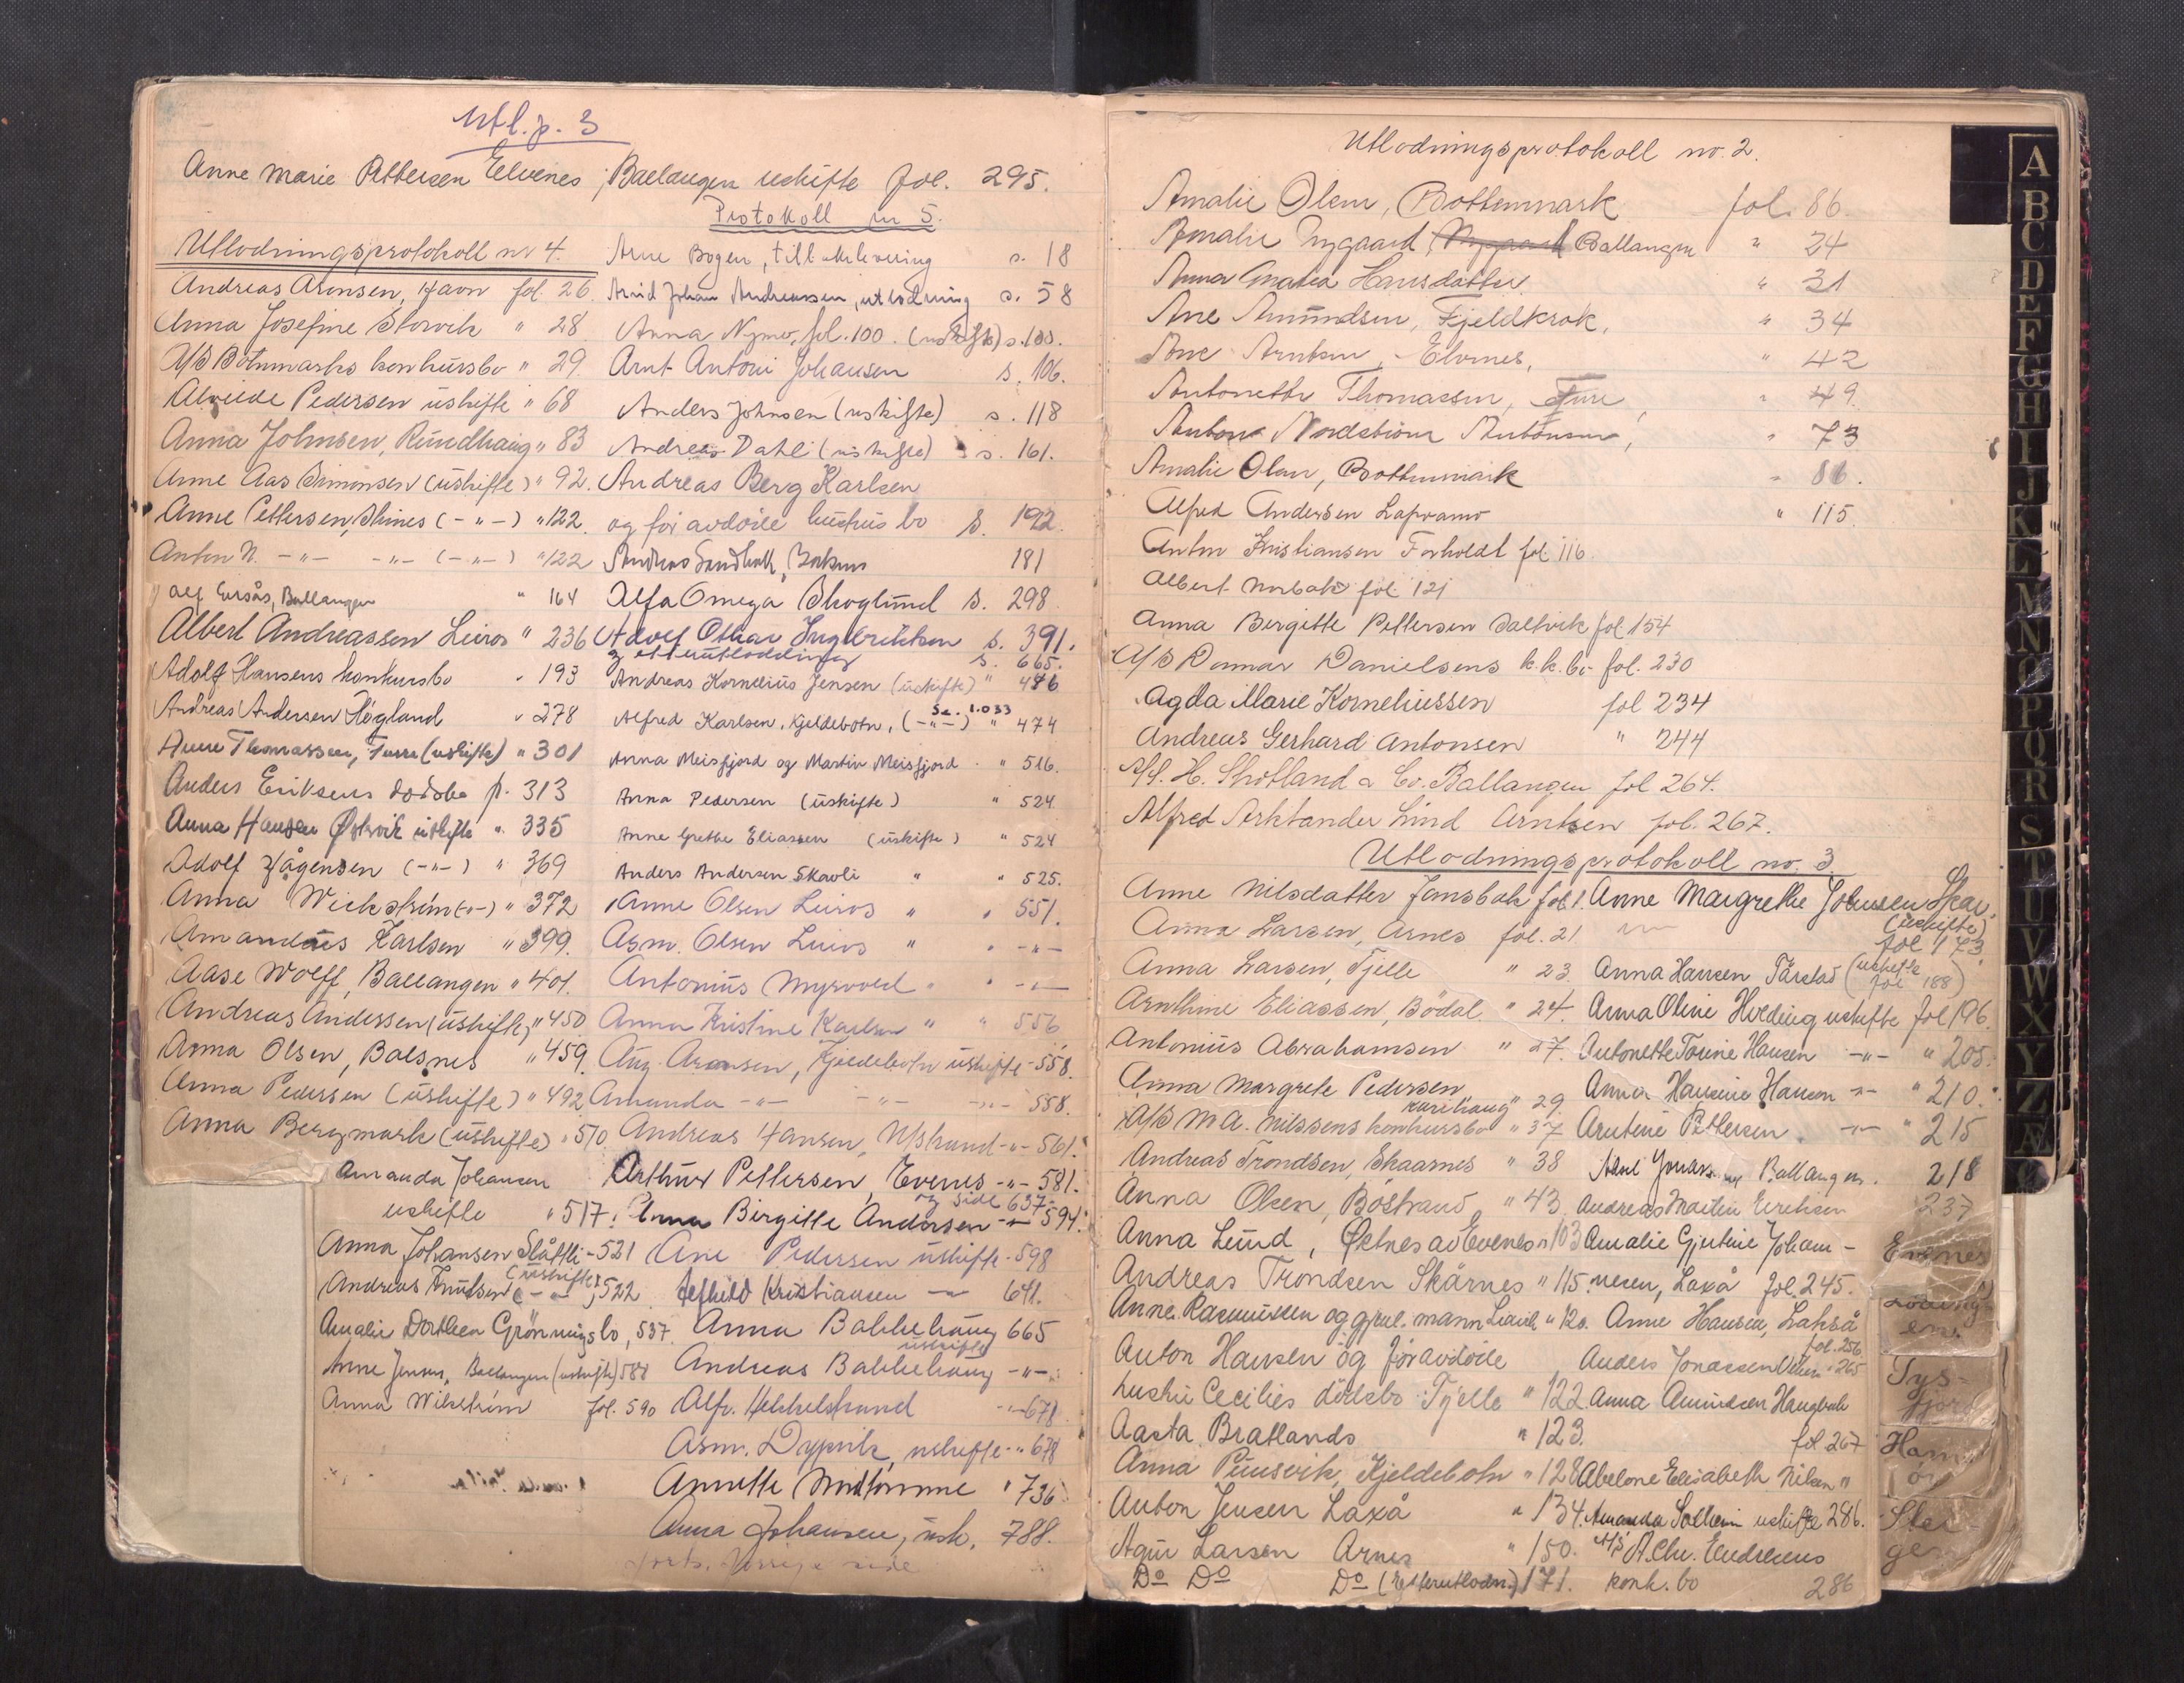 Utl. p. 3
Anne Marie Pettersen Elvenes, Ballangen uskifte fol. 295.
Utlodningsprotokoll nr 4.
Andreas Aronsen, Havn fol. 26.
Anna Josefine Storvik " 28
A/S Botnmarks konkursbo " 29
Pedersen uskifte " 68
Anna Johnsen, Rundhaug " 83
Anne Aas Simonsen (uskifte) " 92.
Anne Pettersen, (-"-) " 122.
Anton N. -"- -"- (-"-) " 122
Alf Ballangen " 164
Albert Andreassen Leiros " 236
Adolf Hansens konkursbo " 193
Andreas Andersen Høgland " 278
Anne Thomassen, (uskifte) " 301
Anders Eriksens dødsbo p. 313
Anna Hansen Østvik uskifte " 335
Adolf Hågensen (-"-) " 369
Anna Wickstrøm (-"-) " 372
Amandus Karlsen " 399.
Aase Wolff, Ballangen " 401.
Andreas Andersen (uskifte) " 450
Anna Olsen, Balsnes " 459.
Anna Pedersen (uskifte) " 492
Anna Bergmark (uskifte) " 510
Amanda Johansen
uskifte " 517.
Anna Johansen Slåttli - 521
(uskifte)
Andreas Knutsen (-"-) 522
Amalie Dorthea Grønningsbo, 537.
Anne Jensen, Ballangen (uskifte) 588
Anna Wikstrøm fol. 590
Protokoll nr 5.
Arne Bogen, s. 18
Arvid Johan Andreassen, utlodning s. 58
Anna Nymo, fol. 100. (uskifte) s. 100.
Arnt Antoni Johansen s. 106.
Anders Johnsen (uskifte) s. 118
Andreas Dahl (uskifte) s. 161.
Andreas Berg Karlsen
og før avdøde hustrus bo s. 192.
Andreas 181
Alfa Omega Skoglund s. 298
Adolf Othar Ingebriktsen s. 391.
og etterutlodning s. 665.
Andreas Kornelius Jensen (uskifte) " 486
Se. 1.033
Alfred Karlsen, Kjeldebotn, (-"-) " 474
Anna Meisfjord og Martin Meisfjord " 516.
Anna Pedersen (uskifte) " 524
Anne Grethe Eliassen (uskifte) " 524
Anders Andersen Skavli " " 525.
Anne Olsen Leiros " " 551.
Asm. Olsen Leiros " " -"-
Antonius Myrvold " " -"-
Anna Kristine Karlsen " " 556
Aug. Aronsen, Kjeldebotn uskifte - 558.
Amanda -"- -"- -"- 558.
Andreas Hansen, -"- 561.
Arthur Pettersen, Evenes -"- 581.
og side 637.
Anna Birgitte Andersen -"- 594.
Ane Pedersen uskifte - 598
Kristiansen -"- 641.
Anna Bakkehaug 665
uskifte
Andreas Bakkehaug -"-
Alfr. Hekkelstrand -"- 678
Asm. Dypvik, uskifte - " 678
Annette Midttømme " 736
Anna Johansen, usk. 788.
forts. forrige side
Utlodningsprotokoll no. 2.
Amalie Olsen, Bottenmark fol. 86.
Amalie Nygaard, Ballangen " 24
Anna Hansdatter " 31
Ane Amundsen, Fjeldkrok, " 34
Ane Arntsen, Elvenes, " 42
Antonette Thomassen, " 49.
Anton Nordstrøm Antonsen, " 73
Amalie Olsen, Bottenmark " 86.
Alfred Andersen " 115.
Anton Kristiansen Forholdt fol. 116.
Albert Norbak fol. 121
Anna Birgitte Pettersen Saltvik fol. 154
A/S Danielsens k.k. bo - fol. 230
Agda Marie Korneliussen fol 234
Andreas Gerhard Antonsen " 244
A/S. H. Skotland & Co. Ballangen fol 264.
Alfred Arktander Lind Arntsen fol. 267.
Utlodningsprotokoll no. 3.
Anne Nilsdatter Jansbak fol. 1.
Anna Larsen, Arnes fol. 21
Anna Larsen, Tjelle " 23
Arnthine Eliassen, Bödal. " 24.
Antonius Abrahamsen " 27.
Anna Margrete Pedersen, " 29.
A/S M A. Nilssens konkursbo " 37
Andreas Trondsen, Skaarnes " 38
Anna Olsen, Böstrand " 43.
Anna Lund, Østnes av Evenes " 103
Andreas Trondsen Skårnes " 115.
Anne Rasmussen og gjenl. mann " 120.
Anton Hansen og før avdøde
hustru Cecilies dødsbo Tjelle " 122
Aasta Bratlands " 123.
Anna Punsvik, Kjeldebotn " 128
Anton Jensen Laxå " 134.
Agur Larsen Arnes " 150.
Do Do Do (Efterutlodn.) 171.
Anne Margrethe Johnsen
(uskifte)
fol 173.
Anna Hansen Tårstad (uskifte fol 188)
Anna Oline uskifte fol 196.
Antonette Hansen -"- " 205.
Anna Hansine Hansen -"- " 210.
Arntine Pettersen. -"- " 215
Ballangen. 218
Andreas Martin Eriksen 237
Amalie Gjertine Johan-
nesen, Laxå fol. 245.
Anne Hansen, Lakså
fol. 256
Anders Jonassen 265
Anna Amundsen Haugbak
fol 267
Abelone Elisabeth Nilsen "
Amanda Solheim uskifte 286.
A/S A. Chr. Endresens
konk. bo 286
A
B
C
D
E
F
G
H
I
J
K
L
M
N
O
P
Q
R
S
T
U
V
W
X
Y
Z
Æ
Ø
Evenes
Löding-
en.
Tys-
fjord
Ham-
ör
Stei-
gen